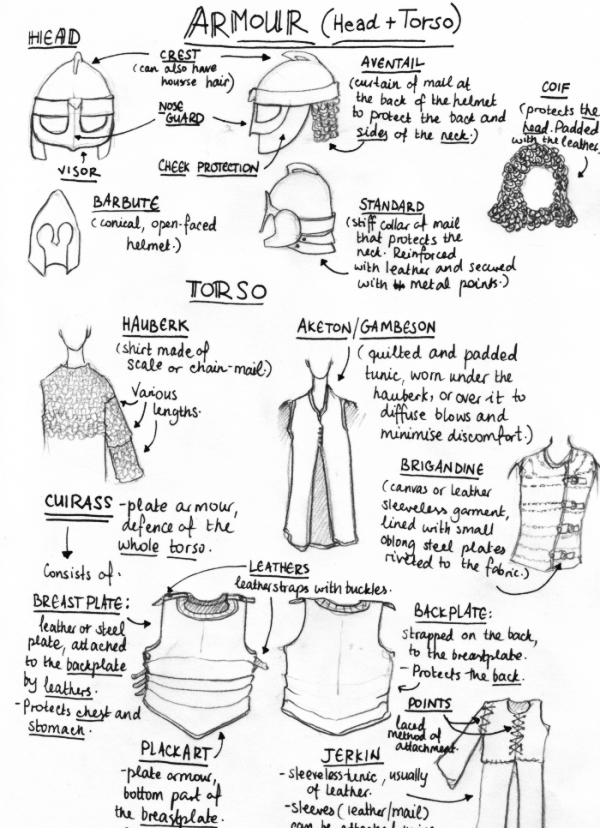 ARMOUR (Head + Torso)
HEAD
CREST
(can also have
hourse hair)
NOSE
GUARD
CHEEK PROTECTION
VISOR
AVENTAIL
(curtain of mail at
the back of the helmet
to protect the back and
sides of the neck.)
COIF
(protects the
head. Padded
with the leather
BARBUTE
(conical, open-faced
helmet.)
STANDARD
(stiff collar of mail
that protects the
neck. Reinforced
with leather and secured
with metal points.)
TORSO
HAUBERK
(shirt made of
scale or chain-mail.)
Various
lengths.
AKETON/GAMBESON
(quilted and padded
tunic, worn under the
hauberk, or over it to
diffuse blows and
minimise discomfort.)
BRIGANDINE
(canvas or leather
sleeveless garment,
lined with small
oblong steel plates
riveted to the fabric.)
CUIRASS - plate armour,
defence of the
whole torso.
Consists of.
LEATHERS
leather straps with buckles.
BREASTPLATE:
leather or steel
plate, attached
to the backplate
by leathers.
- Protects chest and
stomach.
BACKPLATE:
strapped on the back,
to the breastplate.
- Protects the back.
POINTS
laced
method of
attachment.
PLACKART
- plate armour,
bottom part of
the breastplate.
JERKIN
- sleeveless tunic, usually
of leather.
- sleeves (leather/mail)
can be attached